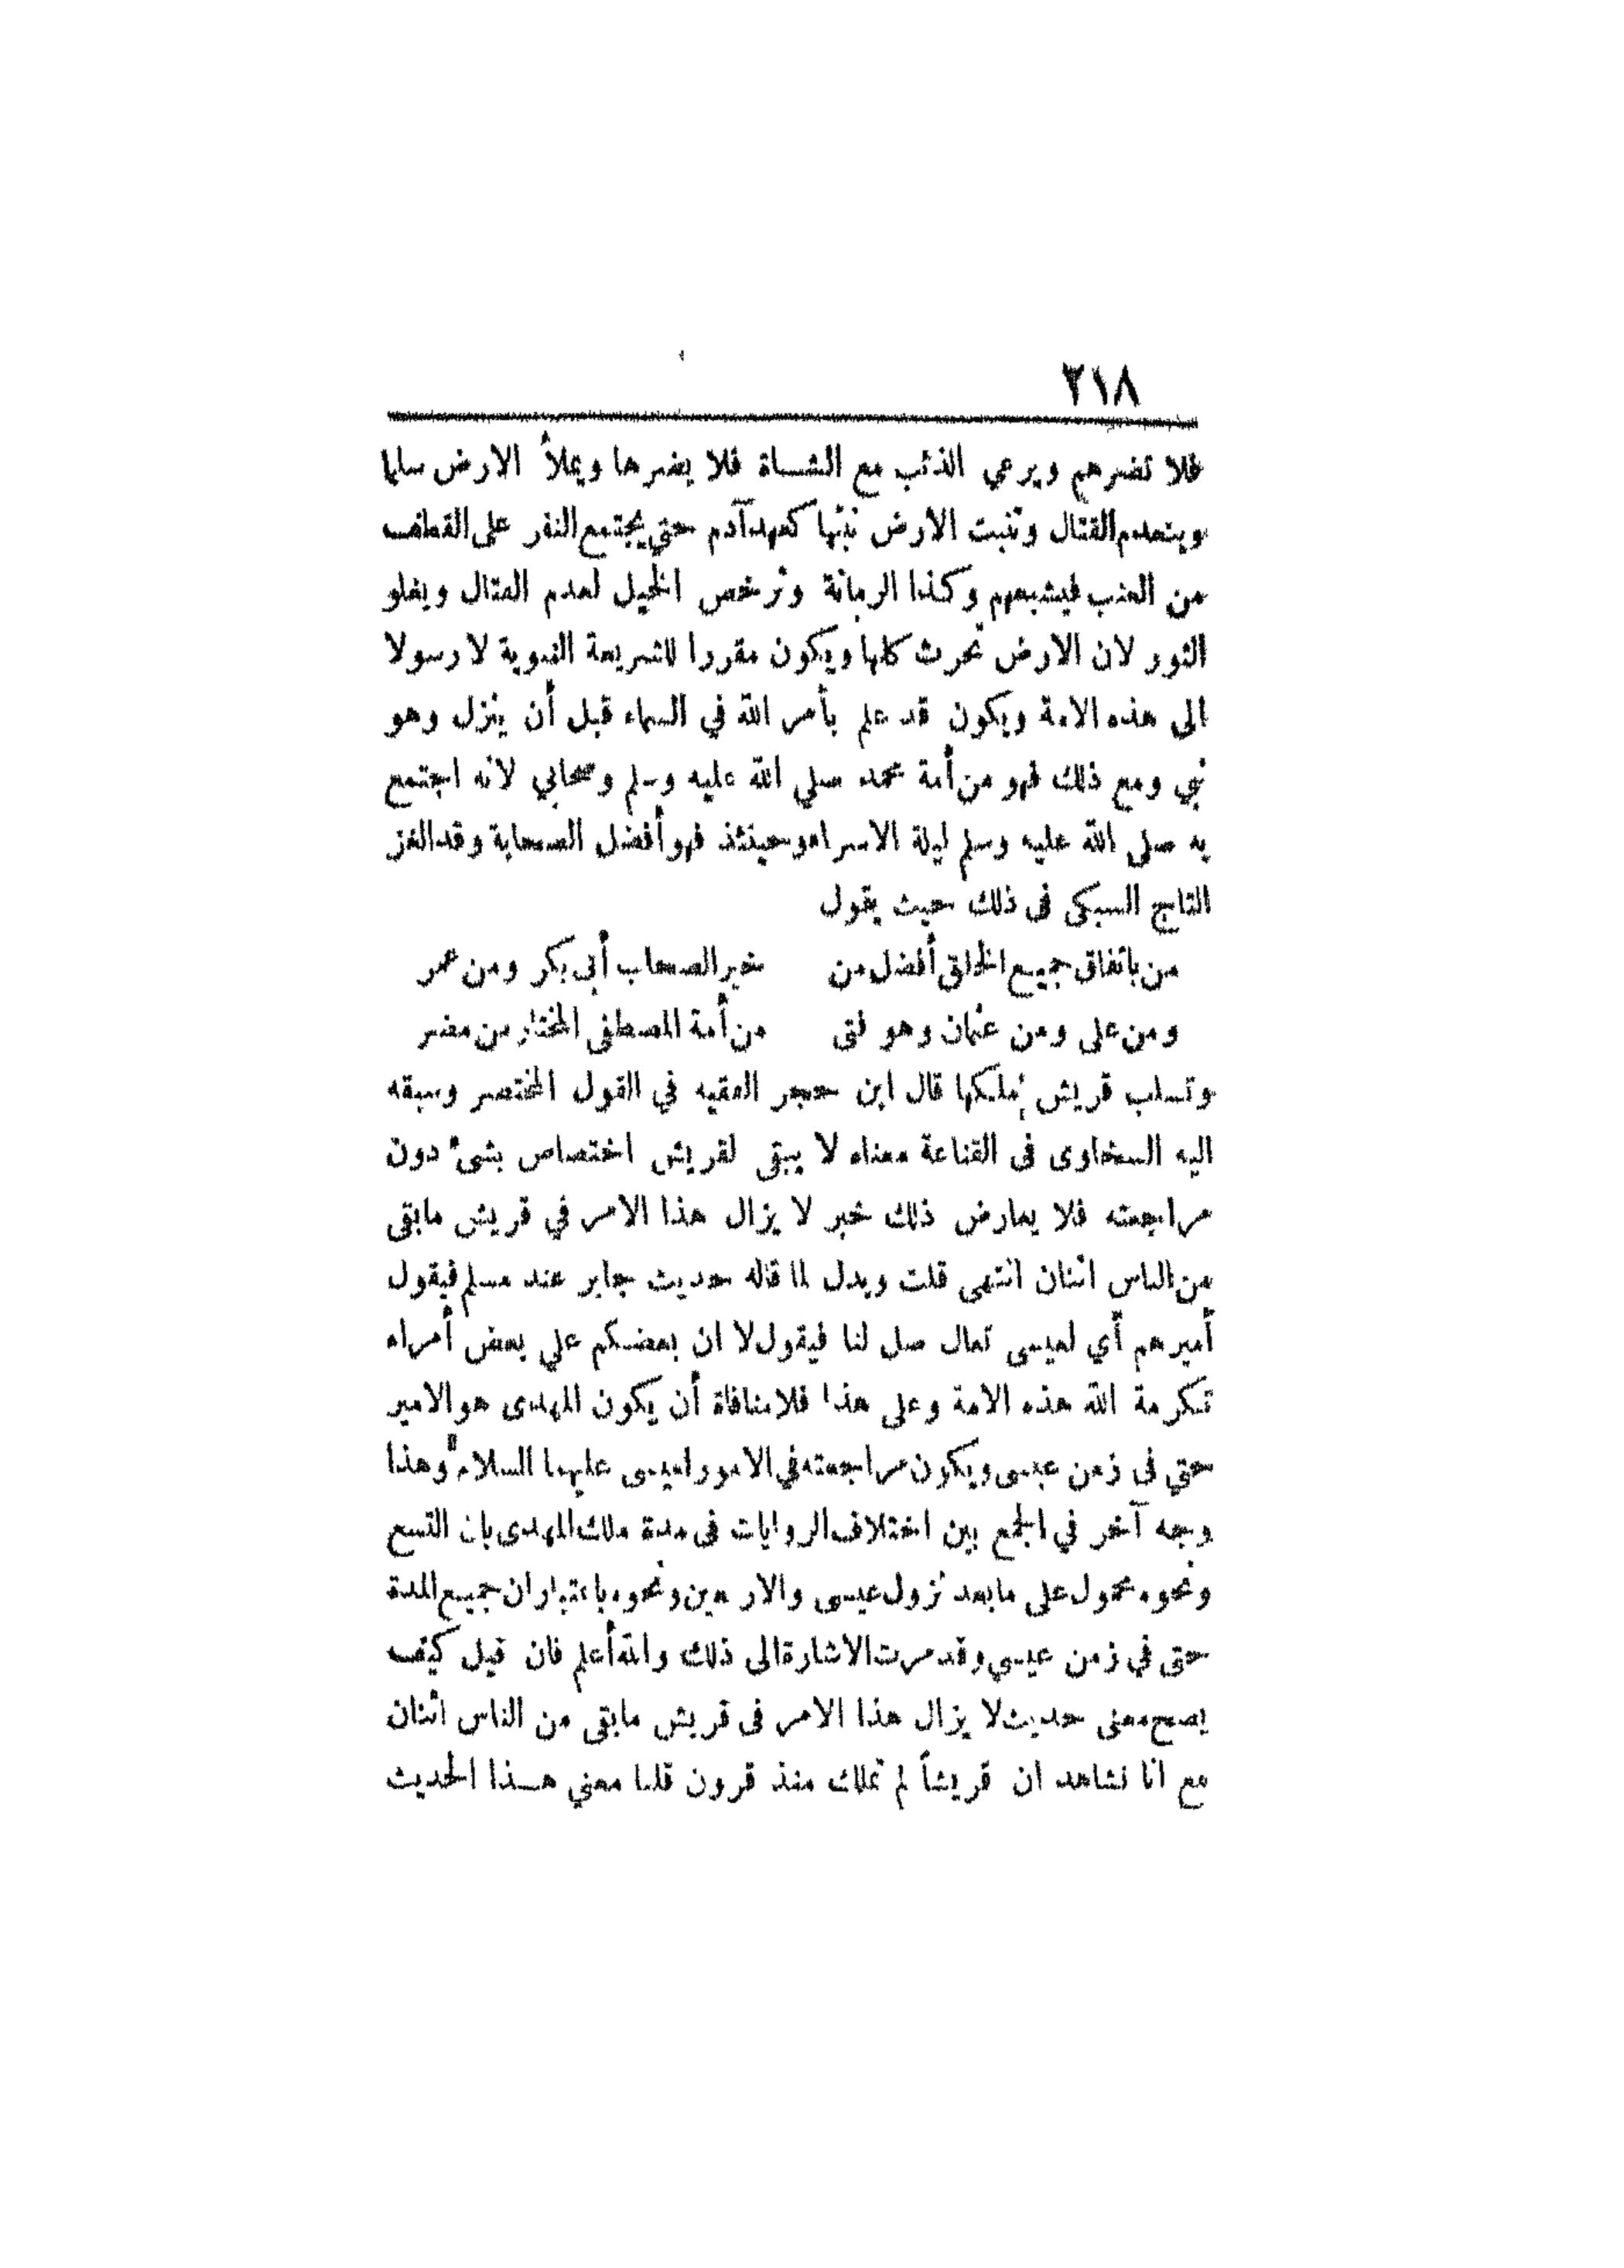 ٢١٨
فلا تضرهم ويرعي الذئب مع الشاة فلا يضرها ويملأ الارض سلما
وينعدم القتال وتنبت الارض نبتها كعهد آدم حتي يجتمع النفر على القطف
من العنب فيشبعهم وكذا الرمانة وترخص الخيل لعدم القتال ويغلو
الثور لان الارض تحرث كلها ويكون مقررا للشريعة النبوية لا رسولا
الى هذه الامة ويكون قد علم بأمر الله في السماء قبل أن ينزل وهو
نبي ومع ذلك فهو من أمة محمد صلي الله عليه وسلم وصحابي لانه اجتمع
به صلى الله عليه وسلم ليلة الاسراء وحينئذ فهو أفضل الصحابة وقد الغز
التاج السبكى فى ذلك حيث يقول
من باتفاق جميع الخلق أفضل من خير الصحاب أبى بكر ومن عمر
ومن على ومن عثمان وهو فتى من أمة المصطفى المختار من مضر
وتسلب قريش ملكها قال ابن حجر الفقيه في القول المختصر وسبقه
اليه السخاوى فى القناعة معناه لا يبقى لقريش اختصاص بشئ دون
مراجعته فلا يعارض ذلك خبر لا يزال هذا الامر في قريش مابقى
من الناس اثنان انتهى قلت ويدل لما قاله حديث جابر عند مسلم فيقول
أميرهم أي لعيسى تعال صل لنا فيقول لا ان بعضكم علي بعض أمراء
تكرمة الله هذه الامة وعلى هذا فلا منافاة أن يكون المهدى هو الامير
حتي فى زمن عيسى ويكون مراجعته في الامور لعيسى عليهما السلام وهذا
وجه آخر في الجمع بين اختلاف الروايات فى مدة ملك المهدى بان التسع
ونحوه محمول على مابعد نزول عيسى والاربعين ونحوه باعتبار ان جميع المدة
حتى في زمن عيسي وقد مرت الاشارة الى ذلك والله أعلم فان قيل كيف
يصح معنى حديث لا يزال هذا الامر فى قريش مابقى من الناس اثنان
مع انا نشاهد ان قريشاً لم تملك منذ قرون قلنا معني هذا الحديث